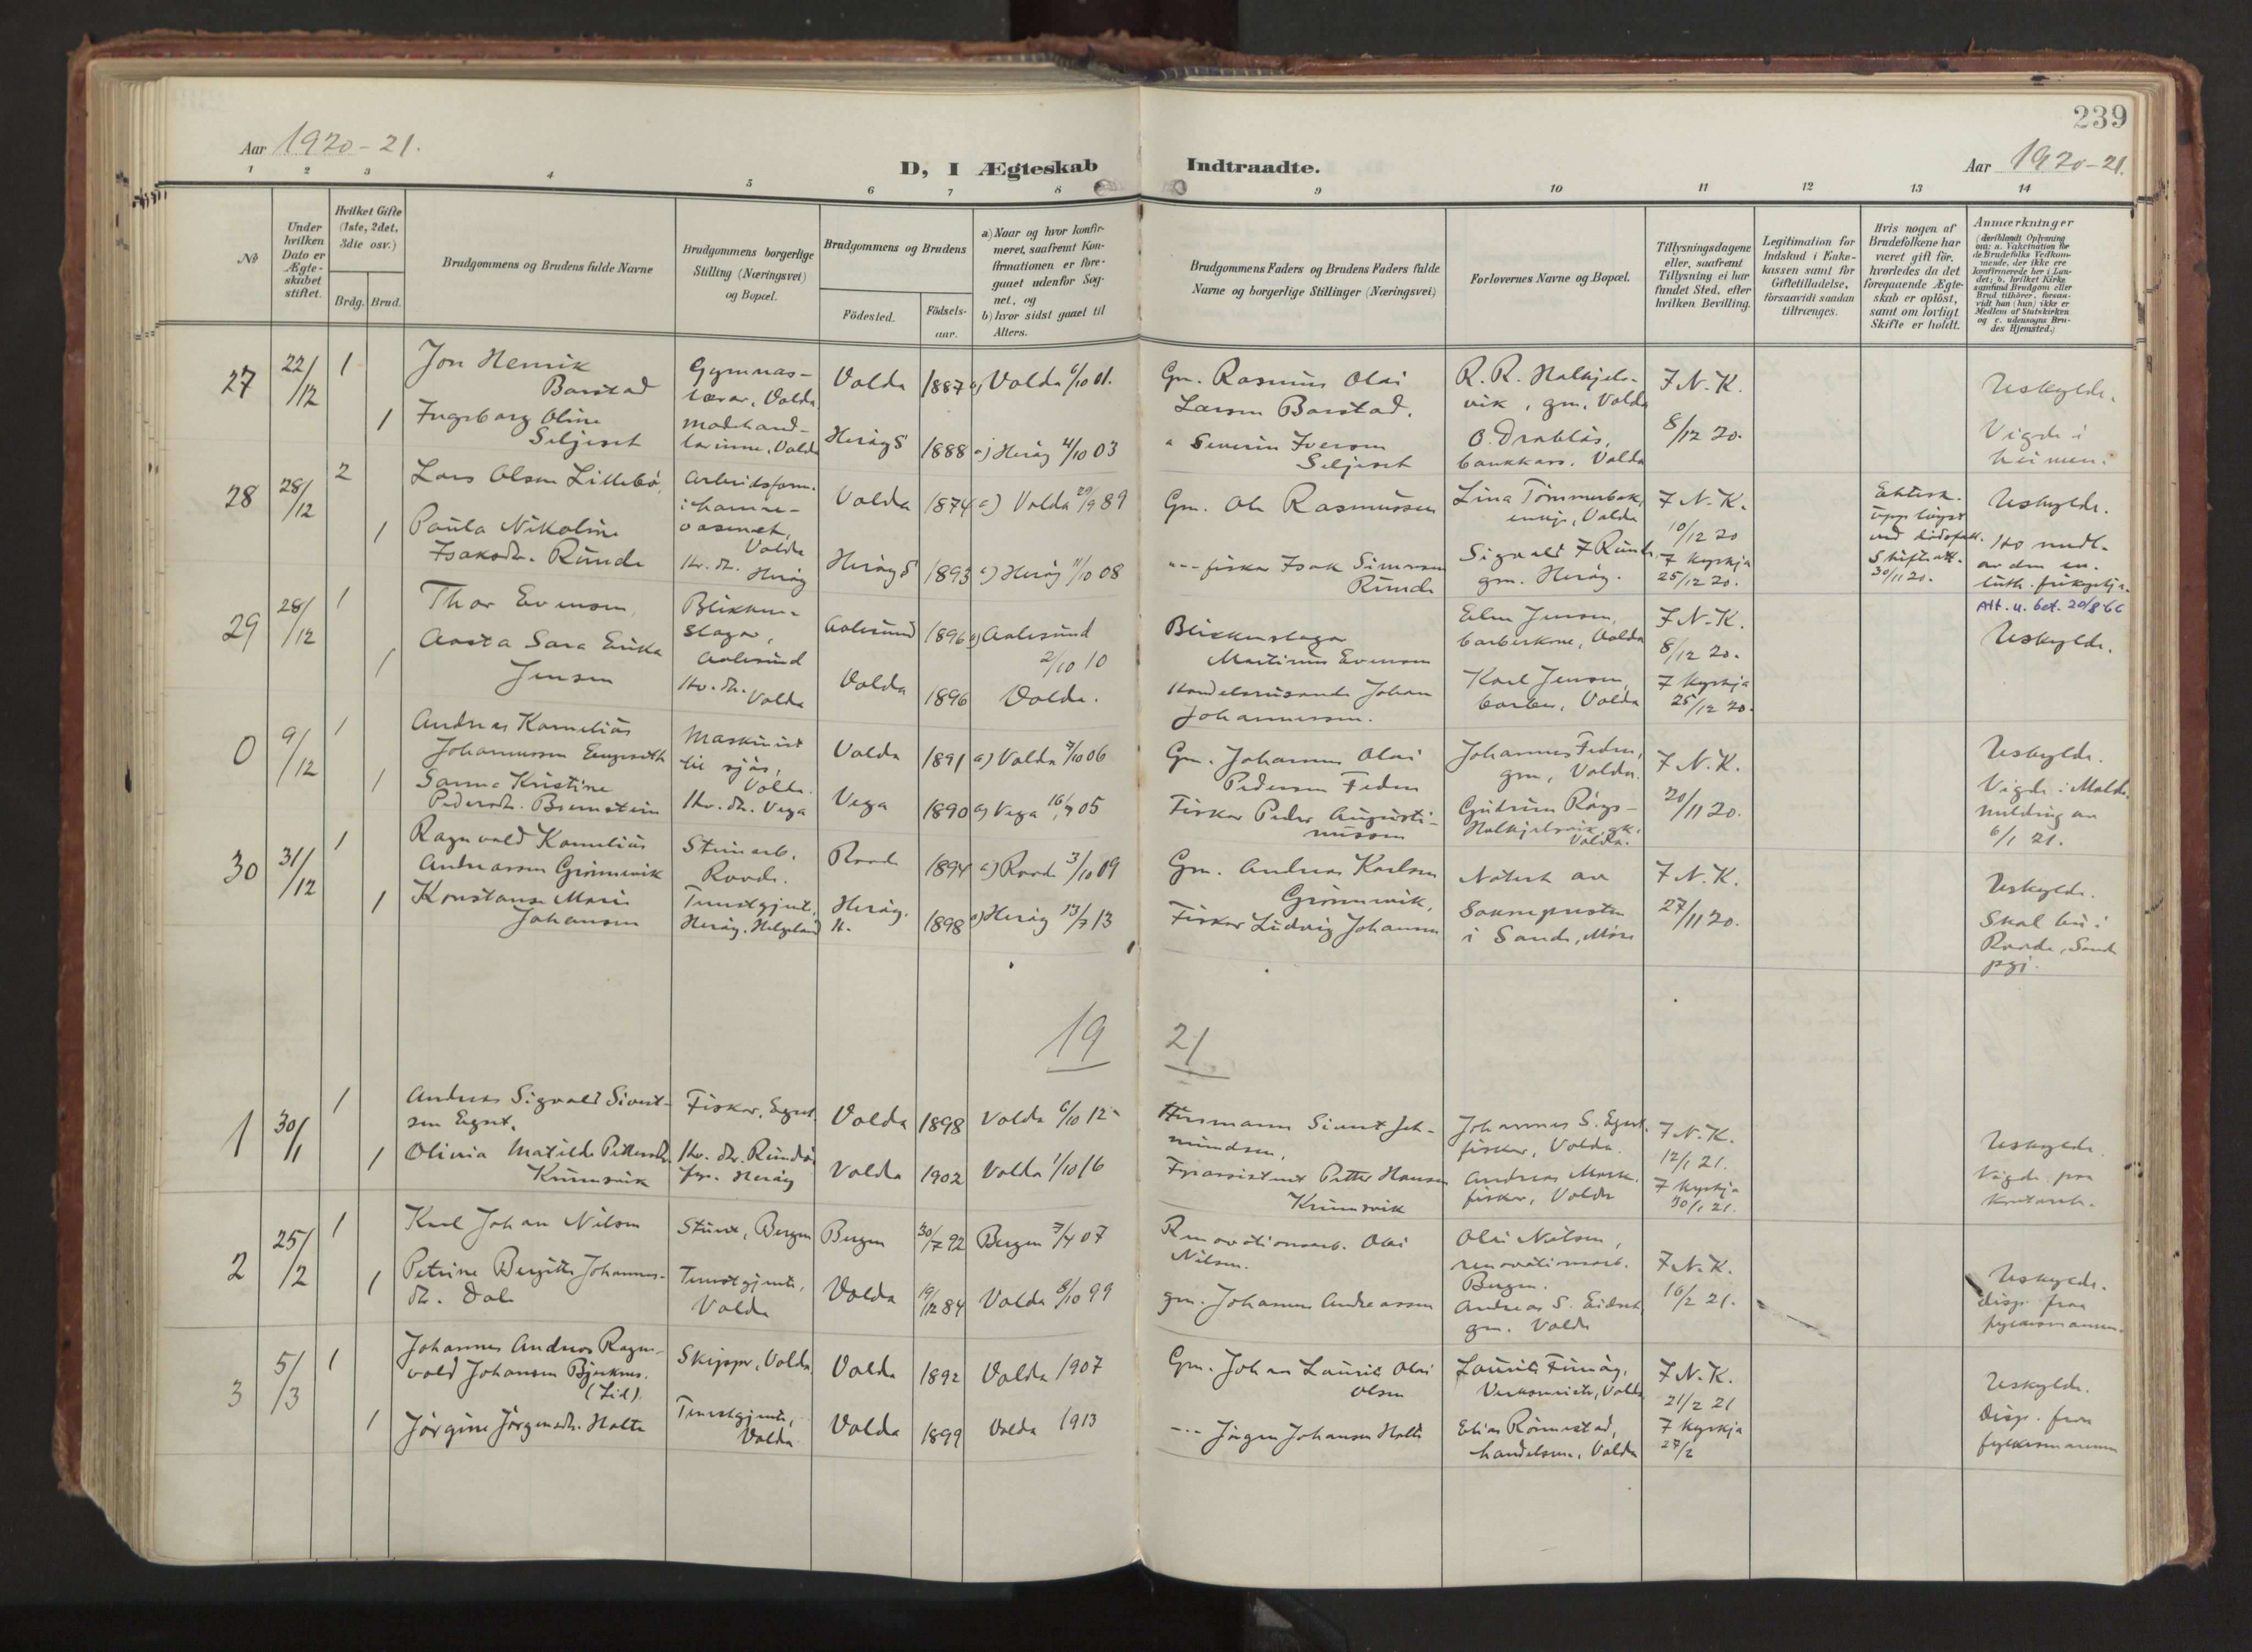 239
Aar 1920-21.
D, I Ægteskab Indtraadte.
Aar 1920-21.
1 2 3 4 5 6 7 8 9 10 11 12 13 14
№
Under hvilken Dato er Ægteskabet stiftet.
Hvilket Gifte (1ste, 2det, 3die osv.)
Brdg. Brud.
Brudgommens og Brudens fulde Navne
Brudgommens borgerlige Stilling (Næringsvei) og Bopæl.
Brudgommens og Brudens
Födested.
Födsels-aar.
a) Naar og hvor konfir-
meret, saafremt Kon-
firmationen er fore-
gaaet udenfor Sog-
net, og
b) hvor sidst gaaet til
Alters.
Brudgommens Faders og Brudens Faders fulde
Navne og borgerlige Stillinger (Næringsvei)
Forlovernes Navne og Bopæl.
Tillysningsdagene
eller, saafremt
Tillysning ei har
fundet Sted, efter
hvilken Bevilling.
Legitimation for
Indskud i Enke-
kassen samt for
Giftetilladelse,
forsaavidt saadan
tiltrænges.
Hvis nogen af
Brudefolkene har
været gift för,
hvorledes da det
foregaaende Ægte-
skab er oplöst,
samt om lovligt
Skifte er holdt.
Anmærkninger
(deriblandt Oplysning
om: a. Vakcination for
de Brudefolks Vedkom-
mende, der ikke ere
konfirmerede her i Lan-
det; b. hvilket Kirke
samfund Brudgom eller
Brud tilhörer, forsaa-
vidt han (hun) ikke er
Medlem af Statskirken
og c. udensogns Bru-
des Hjemsted.)
27 22/12 1 Jon Henrik
Barstad
Gymnas-
lærar, Volda
Volda 1887 a) Volda 6/10 01.
Gm. Rasmus Olai
Larsen Barstad.
R. R. Halkjels-
vik, gm. Volda
7 N.K.
8/12 20.
Uskylde.
Vigde i
heimen.
1 Ingeborg Oline
Seljeset
Motehand-
larinne, Volda
Heröy S 1888 a) Heröy 4/10 03
" Severin Iversen
Seljeset
O. Drabløs,
bankkass. Volda
28 28/12 2 Lars Olsen Lillebö,
Arbeidsform.
i hamne-
vesenet,
Volda
Volda 1874 a) Volda 29/9 89
Gm. Ole Rasmussen
Lina Tömmerbak,
enkje, Volda
7 N.K.
10/12 20
7 kyrkja
25/12 20.
Ektesk.
upplöyst
ved dödsfall.
Skifteatt.
30/11 20.
Uskylde.
Ho medl.
av den ev.
luth. frikyrkja.
Att. u. bet. 20/8 66
1 Paula Nikoline
Isaksdtr. Runde
Hv. dtr. Heröy
Heröy S 1893 a) Heröy 11/10 08
"-- fiskar Isak Simonsen
Runde
Sigvald I Runde,
gm. Heröy.
29 28/12 1 Thor Evensen,
Blikken-
slagar,
Aalesund
Aalesund 1896 a) Aalesund
2/10 10
Blikkenslagar
Martinus Evensen
Elen Jensen,
barberkone, Volda
7 N.K.
8/12 20.
7 kyrkja
25/12 20.
Uskylde.
1 Aasta Sara Erika
Jensen
Hv. dtr. Volda
Volda 1896 Volda.
Handelsreisande Johan
Johannessen.
Karl Jensen,
barber, Volda
0 9/12 1 Andreas Kornelius
Johannessen Engeseth
Maskinist
til sjös,
Volda.
Volda 1891 a) Volda 7/10 06
Gm. Johannes Olai
Pedersen Feden
Johannes Feden,
gm, Volda.
7 N.K.
20/11 20.
Uskylde.
Vigde i Molde.
melding av
6/1 21.
1 Sanna Kristine
Pedersdtr. Bremstein
Hv. dtr. Vega
Vega 1890 a) Vega 16/7 05
Fiskar Peder Augusti-
nussen
Gudrun Röys-
Halkjelsvik, gk.
Volda.
30 31/12 1 Ragnvald Kornelius
Andreassen Grönnevik
Steinarb.
Rovde.
Rovde 1894 a) Rovde 3/10 09
Gm. Andreas Karlsen
Grönnevik,
Notert av
Soknepresten
i Sande, Möre
7 N.K.
27/11 20.
Uskylde.
Skal bu i
Rovde, Sande
pgj.
1 Konstanse Marie
Johansen
Tenestgjente,
Heröy, Helgeland
Heröy,
H. 1898 a) Heröy 13/7 13
Fiskar Ludvig Johansen
19 21
1 30/1 1 Andreas Sigvald Sivert-
sen Egset.
Fiskar, Egset.
Volda 1898 Volda 6/10 12.
Husmann Sivert Joh-
mundsen,
Johannes S. Egset,
fiskar, Volda.
7 N.K.
12/1 21.
7 kyrkja
30/1 21.
Uskylde.
Vigde paa
1 Olivia Matilde Pettersdtr.
Krumsvik
Hv. dtr. Rundöy
fyr. Heröy
Volda 1902 Volda 1/10 16
Fyrassistent Petter Hansen
Krumsvik
Andreas Mork,
fiskar, Volda
2 25/2 1 Karl Johan Nilsen
Stuert, Bergen
Bergen 30/7 92 Bergen 7/4 07
Renovationsarb. Olai
Nilsen.
Olai Nilsen,
renovationsarb.
Bergen.
7 N.K.
16/2 21.
Uskylde.
disp. fraa
fylkesmannen.
1 Petrine Bergitte Johannes-
dtr. Dale
Tenestgjente,
Volda
Volda 19/12 84 Volda 8/10 99
gm. Johannes Andreassen
Andreas S. Eidset,
gm. Volda
3 5/3 1 Johannes Andreas Ragn-
vald Johansen Bjerknes.
(Lid).
Skipper, Volda
Volda 1892 Volda 1907
Gm. Johan Laurits Olai
Olsen
Laurits Furöy,
Verksmeister, Volda
7 N.K.
21/2 21
7 kyrkja
27/2
Uskylde.
Disp. fraa
fylkesmannen
1 Jörgine Jörgensdtr. Holte
Tenestgjente,
Volda
Volda 1899 Volda 1913
--- Jörgen Johansen Holte
Elias Rönnestad,
handelsm., Volda